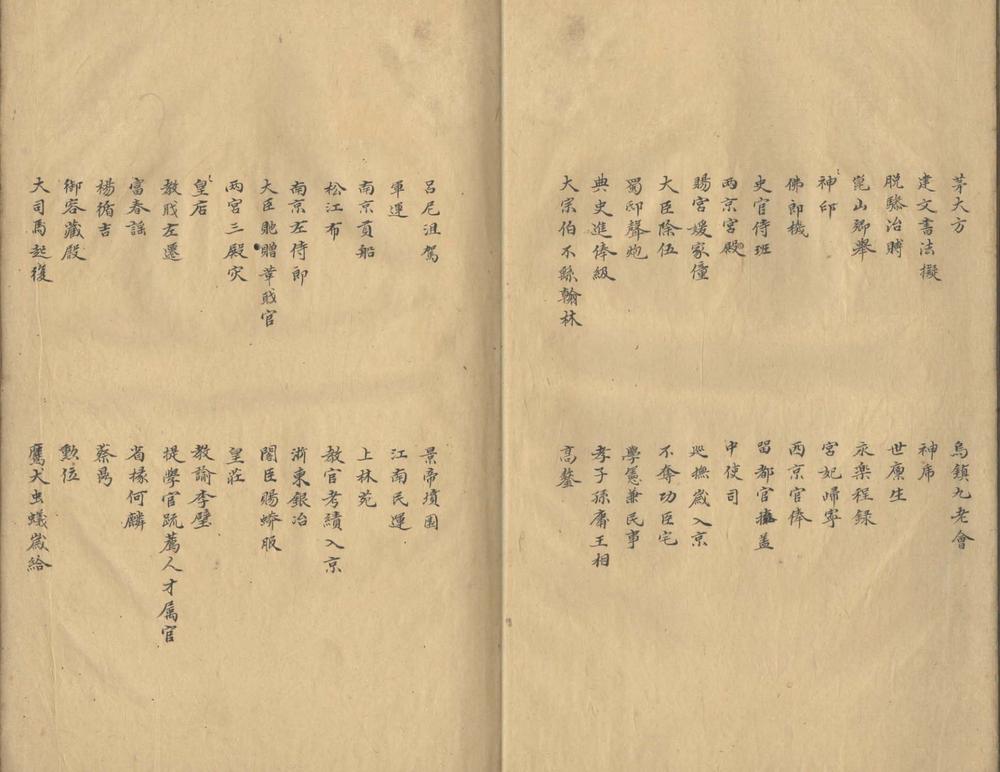 茅大方
烏鎮九老會
建文書法擬
神帛
脫騐治賻
世廕生
崑山鄉舉
永楽程録
神印
宮妃歸寧
佛郎機
西京官俸
史官侍班
留都官擁盖
两京宮殿
中使司
賜宮媛家僮
廵撫歲入京
大臣除伍
不奪功臣宅
蜀邸聲炮
學憲兼民事
典史進俸級
孝子孫膺王相
大宗伯不繇翰林
高鏊
呂尼沮駕
景帝墳園
軍運
江南民運
南京貢船
上林苑
松江布
教官考績入京
南京左侍郎
浙東銀冶
大臣貤贈䒭戝官
閣臣賜蟒服
两宮三殿灾
皇莊
皇店
教諭李璧
教戝左遷
提學官疏薦人才属官
富春謡
省掾何麟
楊循吉
蔡昺
御容藏殿
勲位
大司馬起復
鷹犬虫蟻歲給